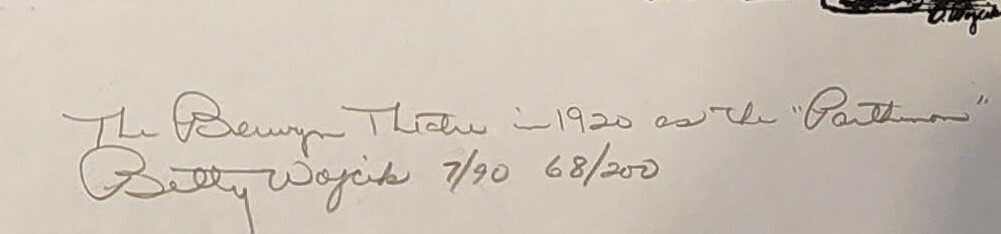 B. Wojcik
The Berwyn Theatre in 1920 as the "Parthenon"
Betty Wojcik 7/90 68/200